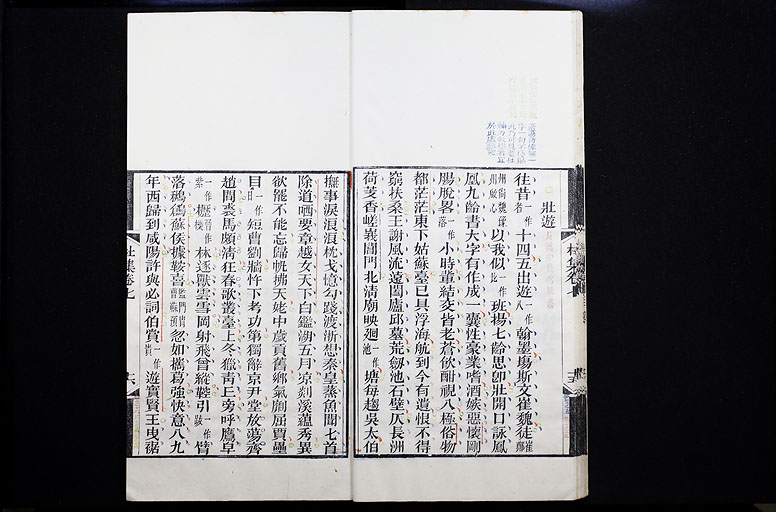 壯遊
往昔一作者十四五出遊一作入翰墨場斯文崔魏徒崔鄭
州尚魏豫州啟以我似一作比班揚七齡思即壯開口詠鳳
凰九齡書大字有作成一囊性豪業嗜酒嫉惡懷剛
腸脫畧一作落小時輩結交皆老蒼飲酣視八極俗物
都茫茫東下姑蘇臺已具浮海航到今有遺恨不得
窮扶桑王謝風流遠闔廬邱墓荒劒池石壁仄長洲
荷芰香嵯峩閶門北清廟映廻一作池塘每趨吳太伯
撫事淚浪浪枕戈憶勾踐渡浙想秦皇蒸魚聞七首
除道哂要章越女天下白鑑湖五月凉剡溪蘊秀異
欲罷不能忘歸帆拂天姥中歲貢舊鄉氣劘屈賈壘
目一作日短曹劉牆忤下考功第獨辭京尹堂放蕩齊
趙間裘馬頗淸狂春歌叢臺上冬獵靑丘旁呼鷹皁
一作紫櫪林逐獸雲雪岡射飛曾縱鞚引一作臂
落鶖鶬蘇侯據鞍喜監門胄曹蘇預忽如攜葛强快意八九
年西歸到咸陽許與必詞伯賞一作貴遊實賢王曳裾
杜集卷七